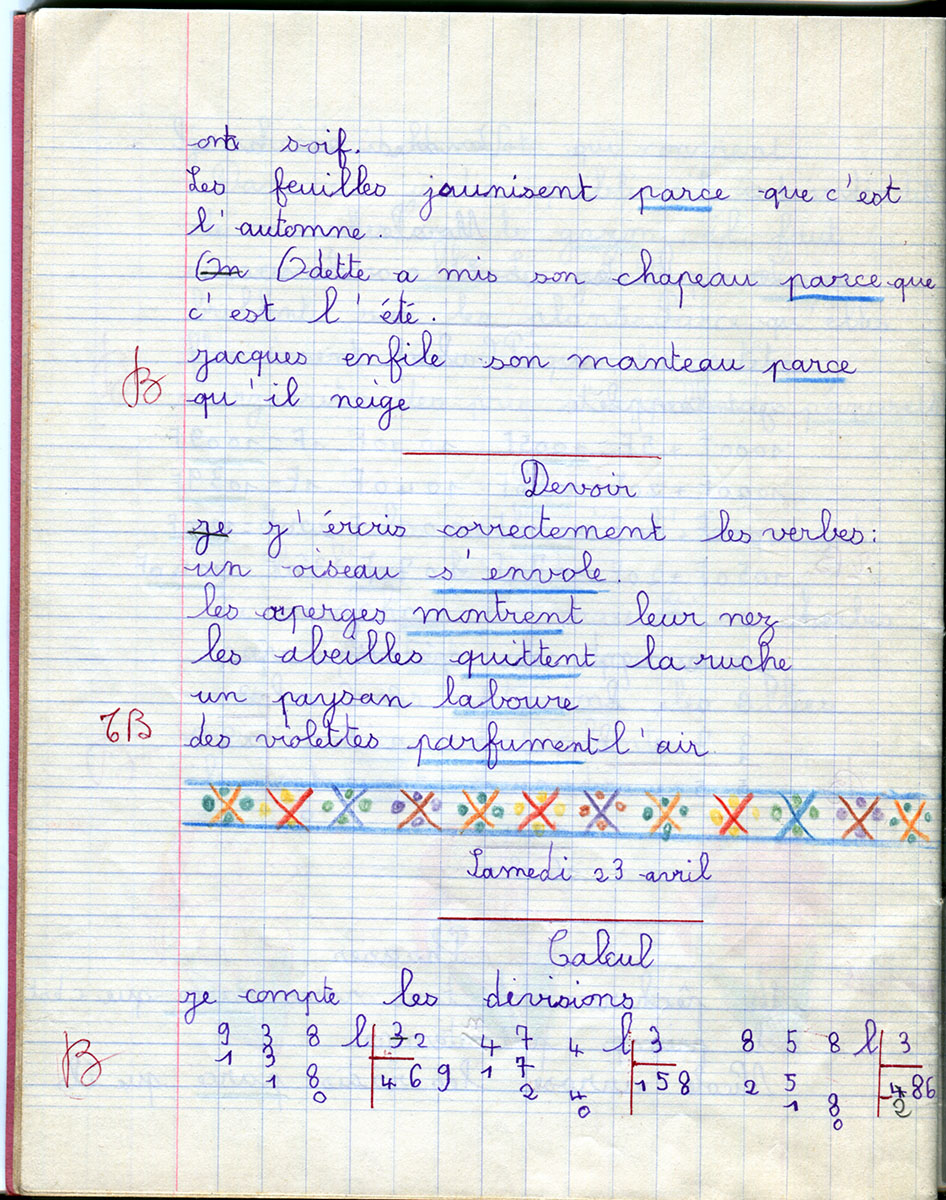 ont soif.
Les feuilles jaunisent parce que c'est
l'automne.
On Odette a mis son chapeau parce que
c'est l'été.
Jacques enfile son manteau parce
B
qu'il neige
Devoir
je J'ércris correctement les verbes:
un oiseau s'envole.
les asperges montrent leur nez
les abeilles quittent la ruche
un paysan laboure
TB
des violettes parfument l'air
Samedi 23 avril
Calcul
Je compte les divisions
B
9 3 8 l 2 4 7 4 l 3 8 5 8 l 3
1 3 4 6 9 1 7 1 5 8 2 5 2 8 6
1 8 2 4 1 8
0 0 0